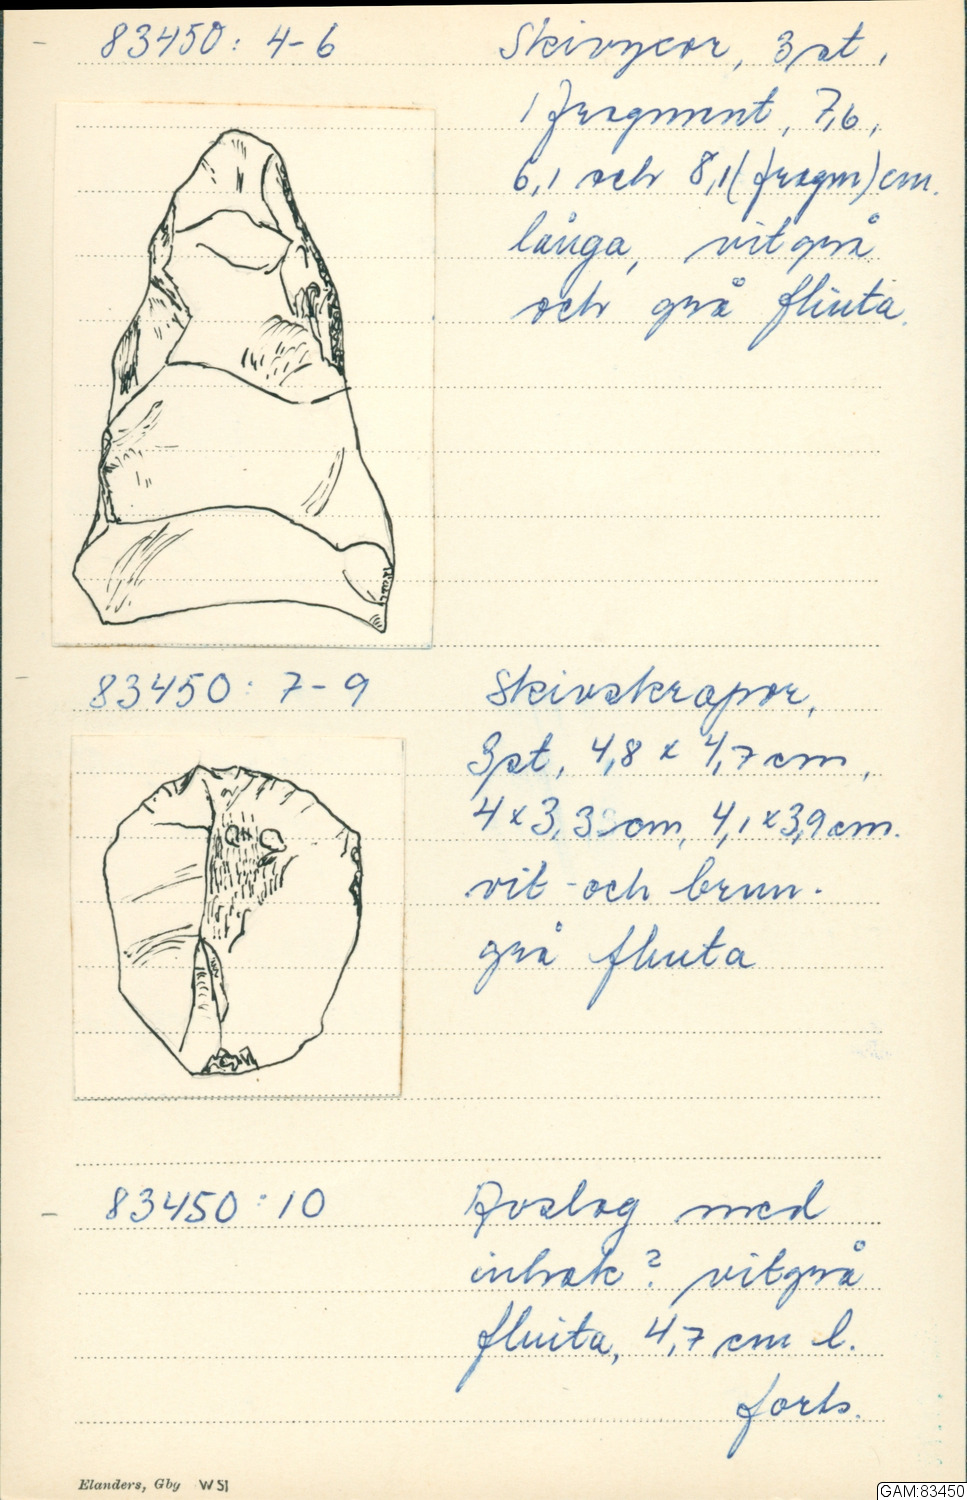 83450: 4-6 Skivyxor, 3 st,
1 fragment, 7,6,
6,1 och 8,1 (fragm) cm.
långa, vitgrå
och grå flinta.
83450: 7-9 Skivskrapor,
3 st, 4,8 x 4,7 cm,
4 x 3,3 cm, 4,1 x 3,9 cm.
vit- och brun-
grå flinta
83450:10 Avslag med
inhak? vitgrå
flinta, 4,7 cm l.
forts.
Elanders, Gby W 51
GAM:83450